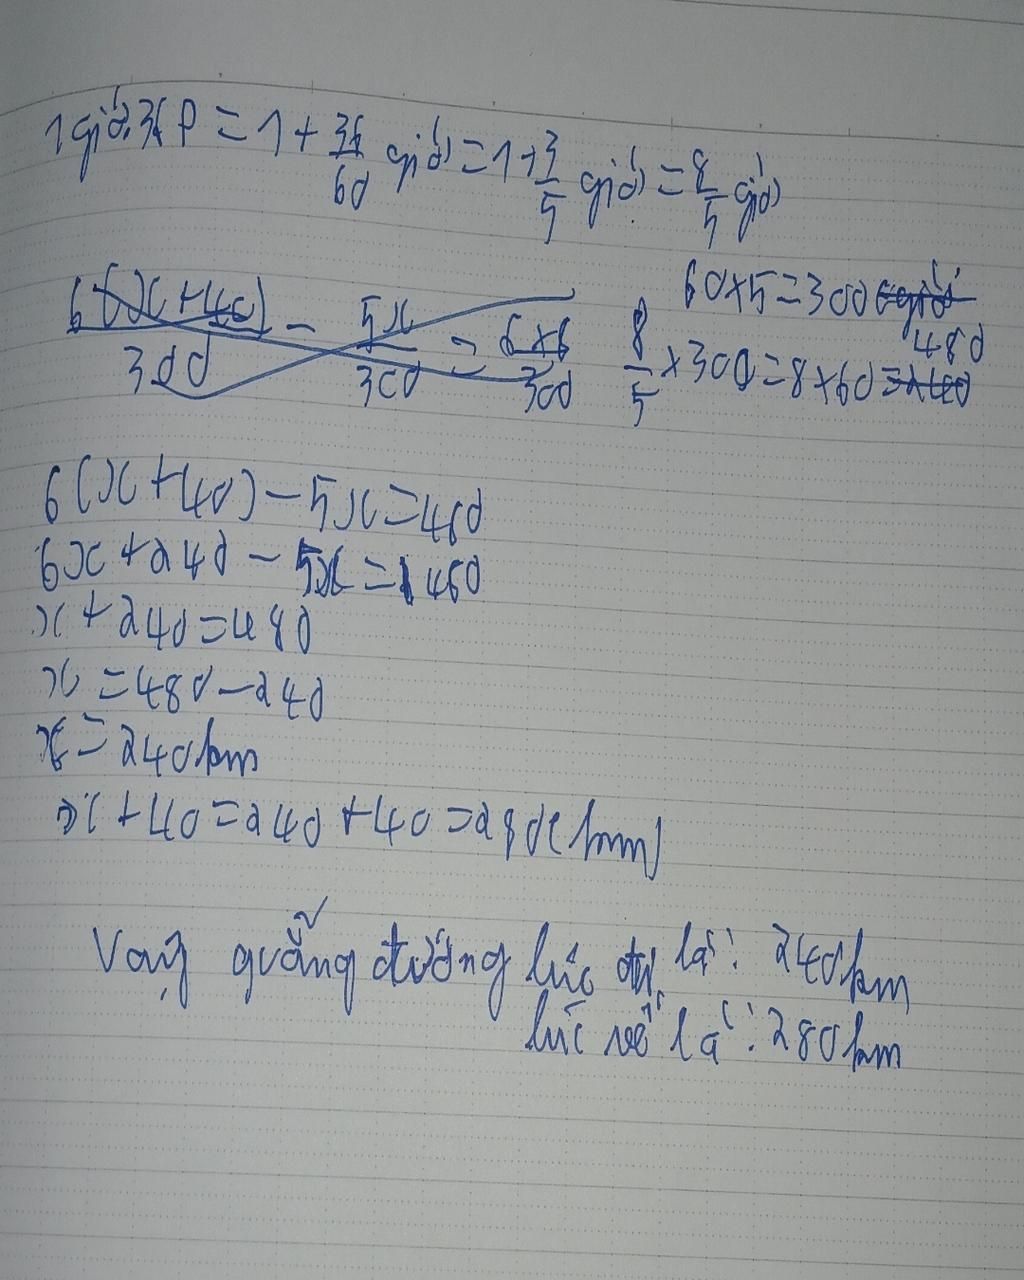 1 giờ 36 P = 1 + 36/60 giờ = 1 + 3/5 giờ = 8/5 giờ
60 x 5 = 300
6(x + 40)/300 - 5x/300 = 6x6/300
8/5 x 300 = 8 x 60 = 480
6(x + 40) - 5x = 480
6x + 240 - 5x = 480
x + 240 = 480
x = 480 - 240
x = 240 km
x + 40 = 240 + 40 = 280 (km)
Vậy quãng đường lúc đi là: 240 km
lúc về là: 280 km